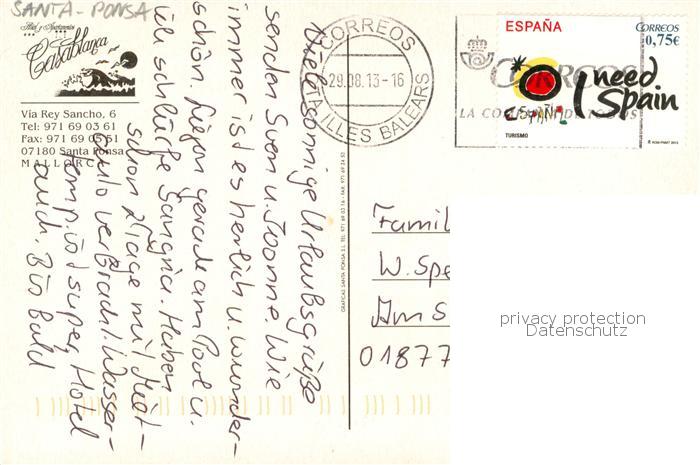 SANTA-PONSA
Hotel y Apartamentos
Casablanca
Vía Rey Sancho, 6
Tel: 971 69 03 61
Fax: 971 69 05 51
07180 Santa Ponsa
MALLORCA
Viele sonnige Urlaubsgrüße
senden Sven u. Yvonne Wie
immer ist es herlich u. wunder-
schön. Liegen gerade am Pool u.
ich schlürfe Sangria. Haben
schon Tage mit Miet-
auto verbracht. Wasser-
temp. ist super, Hotel
auch. Bis bald
CORREOS
29.08.13-16
ILLES BALEARS
CORREOS
LA COMPAÑIA DE TODOS
ESPAÑA
CORREOS
0,75€
I need
Spain
ESPAÑA
TURISMO
GRAFICAS SANTA PONSA S.L. TEL. 971 69 03 16 - FAX. 971 69 24 52
Famil
W. Spe
Am S
01877
privacy protection
Datenschutz